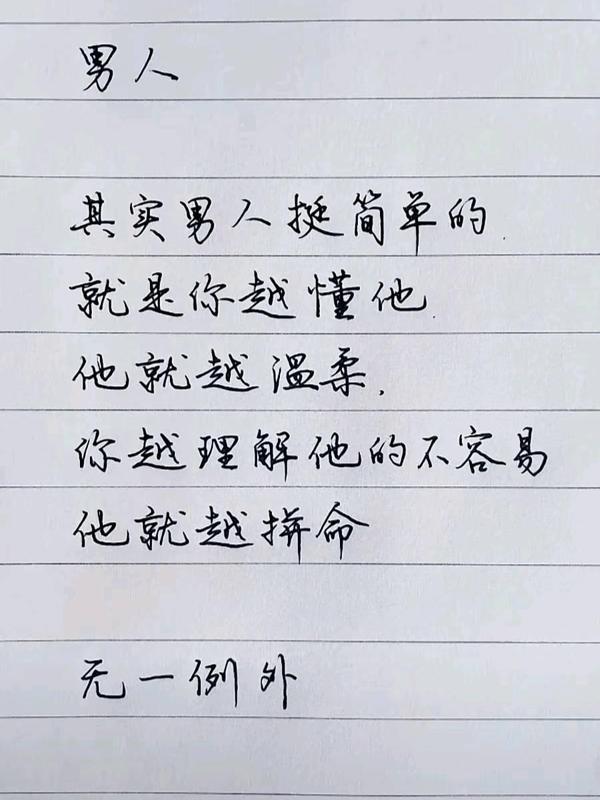 男人
其实男人挺简单的.
就是你越懂他.
他就越温柔.
你越理解他的不容易
他就越拼命
无一例外